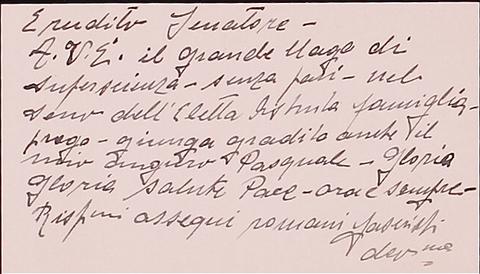 Erudito Senatore –
A.V.E. il grande Mago di
superscienza – senza pari – nel
seno dell'Eletta Illustre famiglia –
prego – giunga gradito anche il
mio augurio Pasquale – Gloria
Gloria salute Pace – ora e sempre –
ossequi romani fascisti
dev.ma